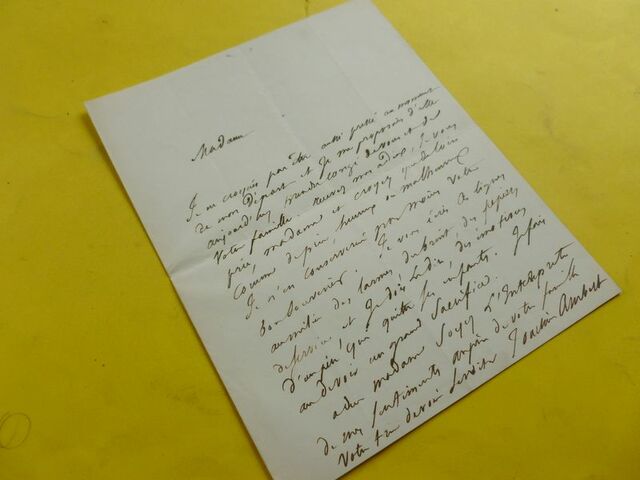 Madame
Je ne croyais pas être aussi pressé au moment
de mon départ et je me proposais d'aller
aujourd'hui prendre congé de vous et de
votre famille. Recevez mes adieux, je vous
prie, madame et croyez que de loin
comme de près, heureux ou malheureux
je n'en conserverai pas moins votre
bon souvenir. Je vous écris ces lignes
au milieu des larmes du bruit, des papiers
de service et je dois le dire, des émotions
d'un père qui quitte ses enfants. Je fais
au devoir un grand sacrifice.
adieu madame soyez l'interprète
de mes sentiments auprès de votre famille
votre très dévoué serviteur Joachim Ambert